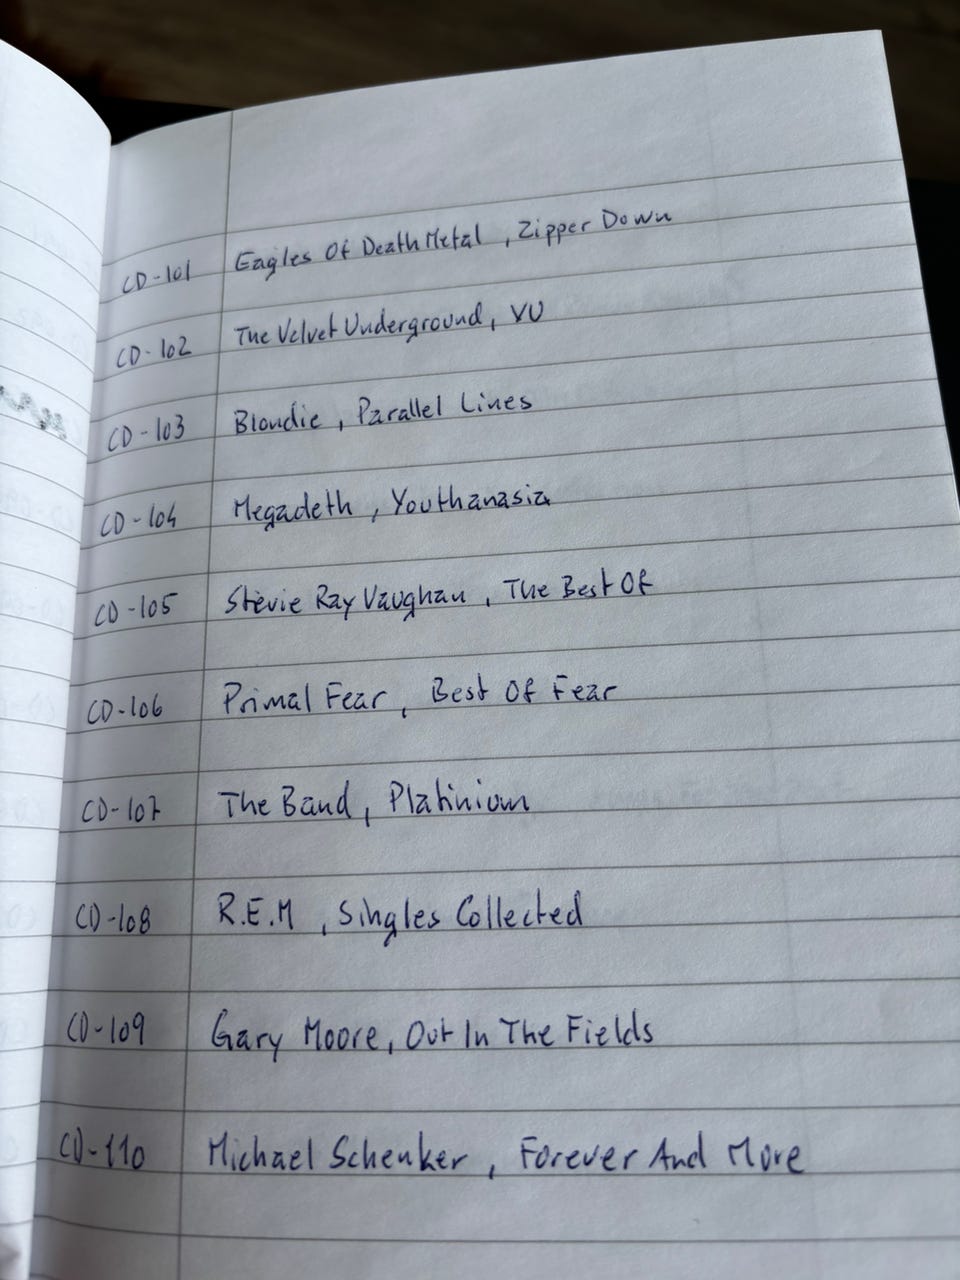 CD-101 Eagles Of Death Metal , Zipper Down
CD-102 The Velvet Underground, VU
CD-103 Blondie , Parallel Lines
CD-104 Megadeth , Youthanasia
CD-105 Stevie Ray Vaughan , The Best Of
CD-106 Primal Fear , Best Of Fear
CD-107 The Band , Platinium
CD-108 R.E.M , Singles Collected
CD-109 Gary Moore, Out In The Fields
CD-110 Michael Schenker , Forever And More